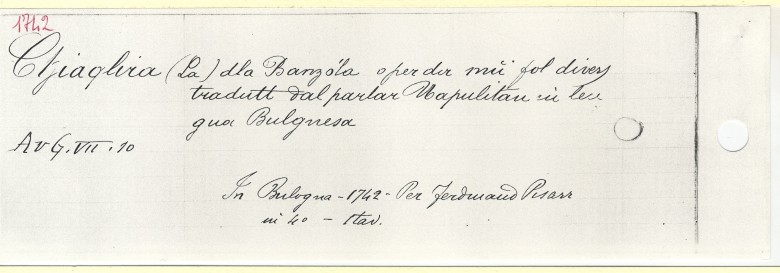 1742
Chjaqlira (La) dla Banzóla o per dir mii fol divers
tradutt dal parlar Napulitan in len
gua Bulgnesa
AV G. VII. 10
In Bulogna - 1742 - Per Ferdinand Pisarr
in 4° - 1 tav.